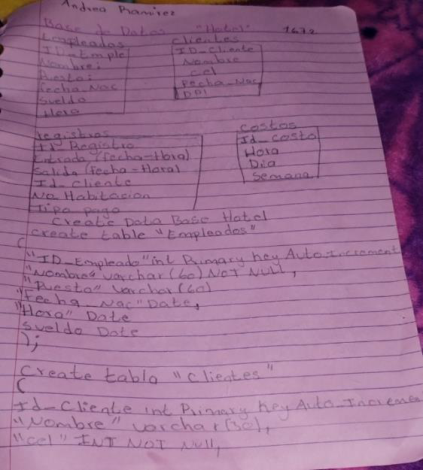 Andrea Ramirez
Base de Datos "Hotel"
1672
Empleados
ID-Emple
Nombre:
Puesto:
Fecha-Nac
Sueldo
Hora
clientes
ID-Cliente
Nombre
cel
Fecha-Nac
DPI
registros
ID_Registro
Entrada (fecha-Hora)
Salida (Fecha-Hora)
Id_cliente
No Habitacion
Tipo pago
costos
Id_costo
Hora
Dia
Semana
Create Data Base Hotel
create table "Empleados"
(
"ID_Empleado" int Primary key Auto_increment
"Nombre" varchar (60) NOT NULL,
"Puesto" varchar (60)
"Fecha_Nac" Date,
"Hora" Date
Sueldo Date
);
Create tabla "Clientes"
(
Id_Cliente int Primary key Auto_Increme
"Nombre" varchar (30),
"cel" INT NOT NULL,